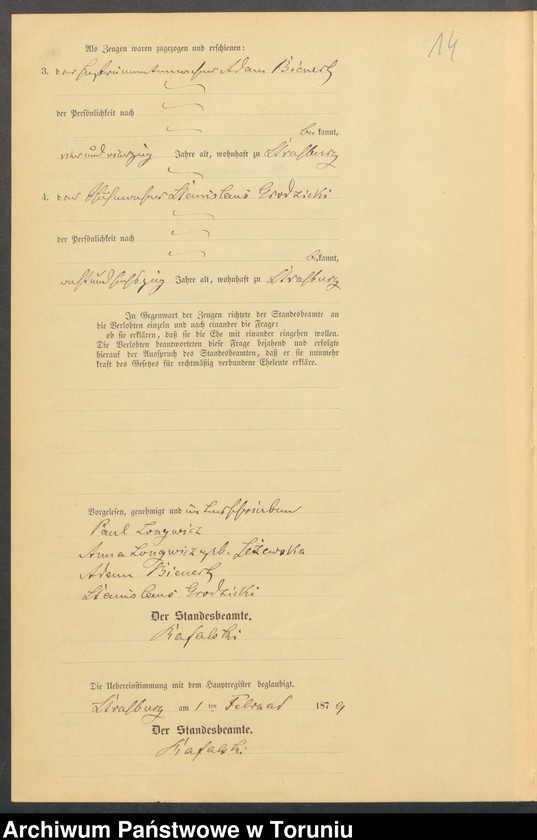 14
Als Zeugen waren zugezogen und erschienen:
3. der Instrumentenmacher Adam Bienert
der Persönlichkeit nach
be kannt,
vier und vierzig Jahre alt, wohnhaft zu Straßburg
4. der Schuhmacher Stanislaus Grodzicki
der Persönlichkeit nach
be kannt,
acht und sechszig Jahre alt, wohnhaft zu Straßburg
In Gegenwart der Zeugen richtete der Standesbeamte an
die Verlobten einzeln und nach einander die Frage:
ob sie erklären, daß sie die Ehe mit einander eingehen wollen.
Die Verlobten beantworteten diese Frage bejahend und erfolgte
hierauf der Ausspruch des Standesbeamten, daß er sie nunmehr
kraft des Gesetzes für rechtmäßig verbundene Eheleute erkläre.
Vorgelesen, genehmigt und unterschrieben
Paul Longwicz
Anna Longwicz geb. Jeżewska
Adam Bienert
Stanislaus Grodzicki
Der Standesbeamte.
Rafalski
Die Uebereinstimmung mit dem Hauptregister beglaubigt.
Straßburg am 1 ten Februar 1879
Der Standesbeamte.
Rafalski
Archiwum Państwowe w Toruniu